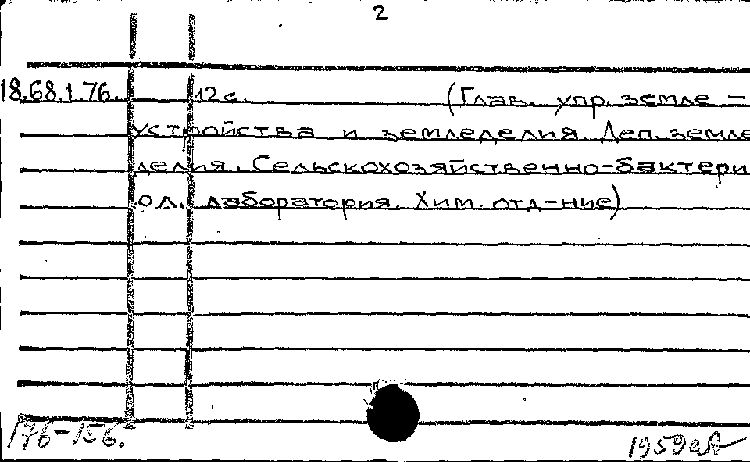 2
18.68.1.76. 12 с. (Глав. упр. земле-
устройства и земледелия. Деп. земле
делия. Сельскохозяйственно-бактери
ол. лаборатория. Хим. отд-ние)
176-156.